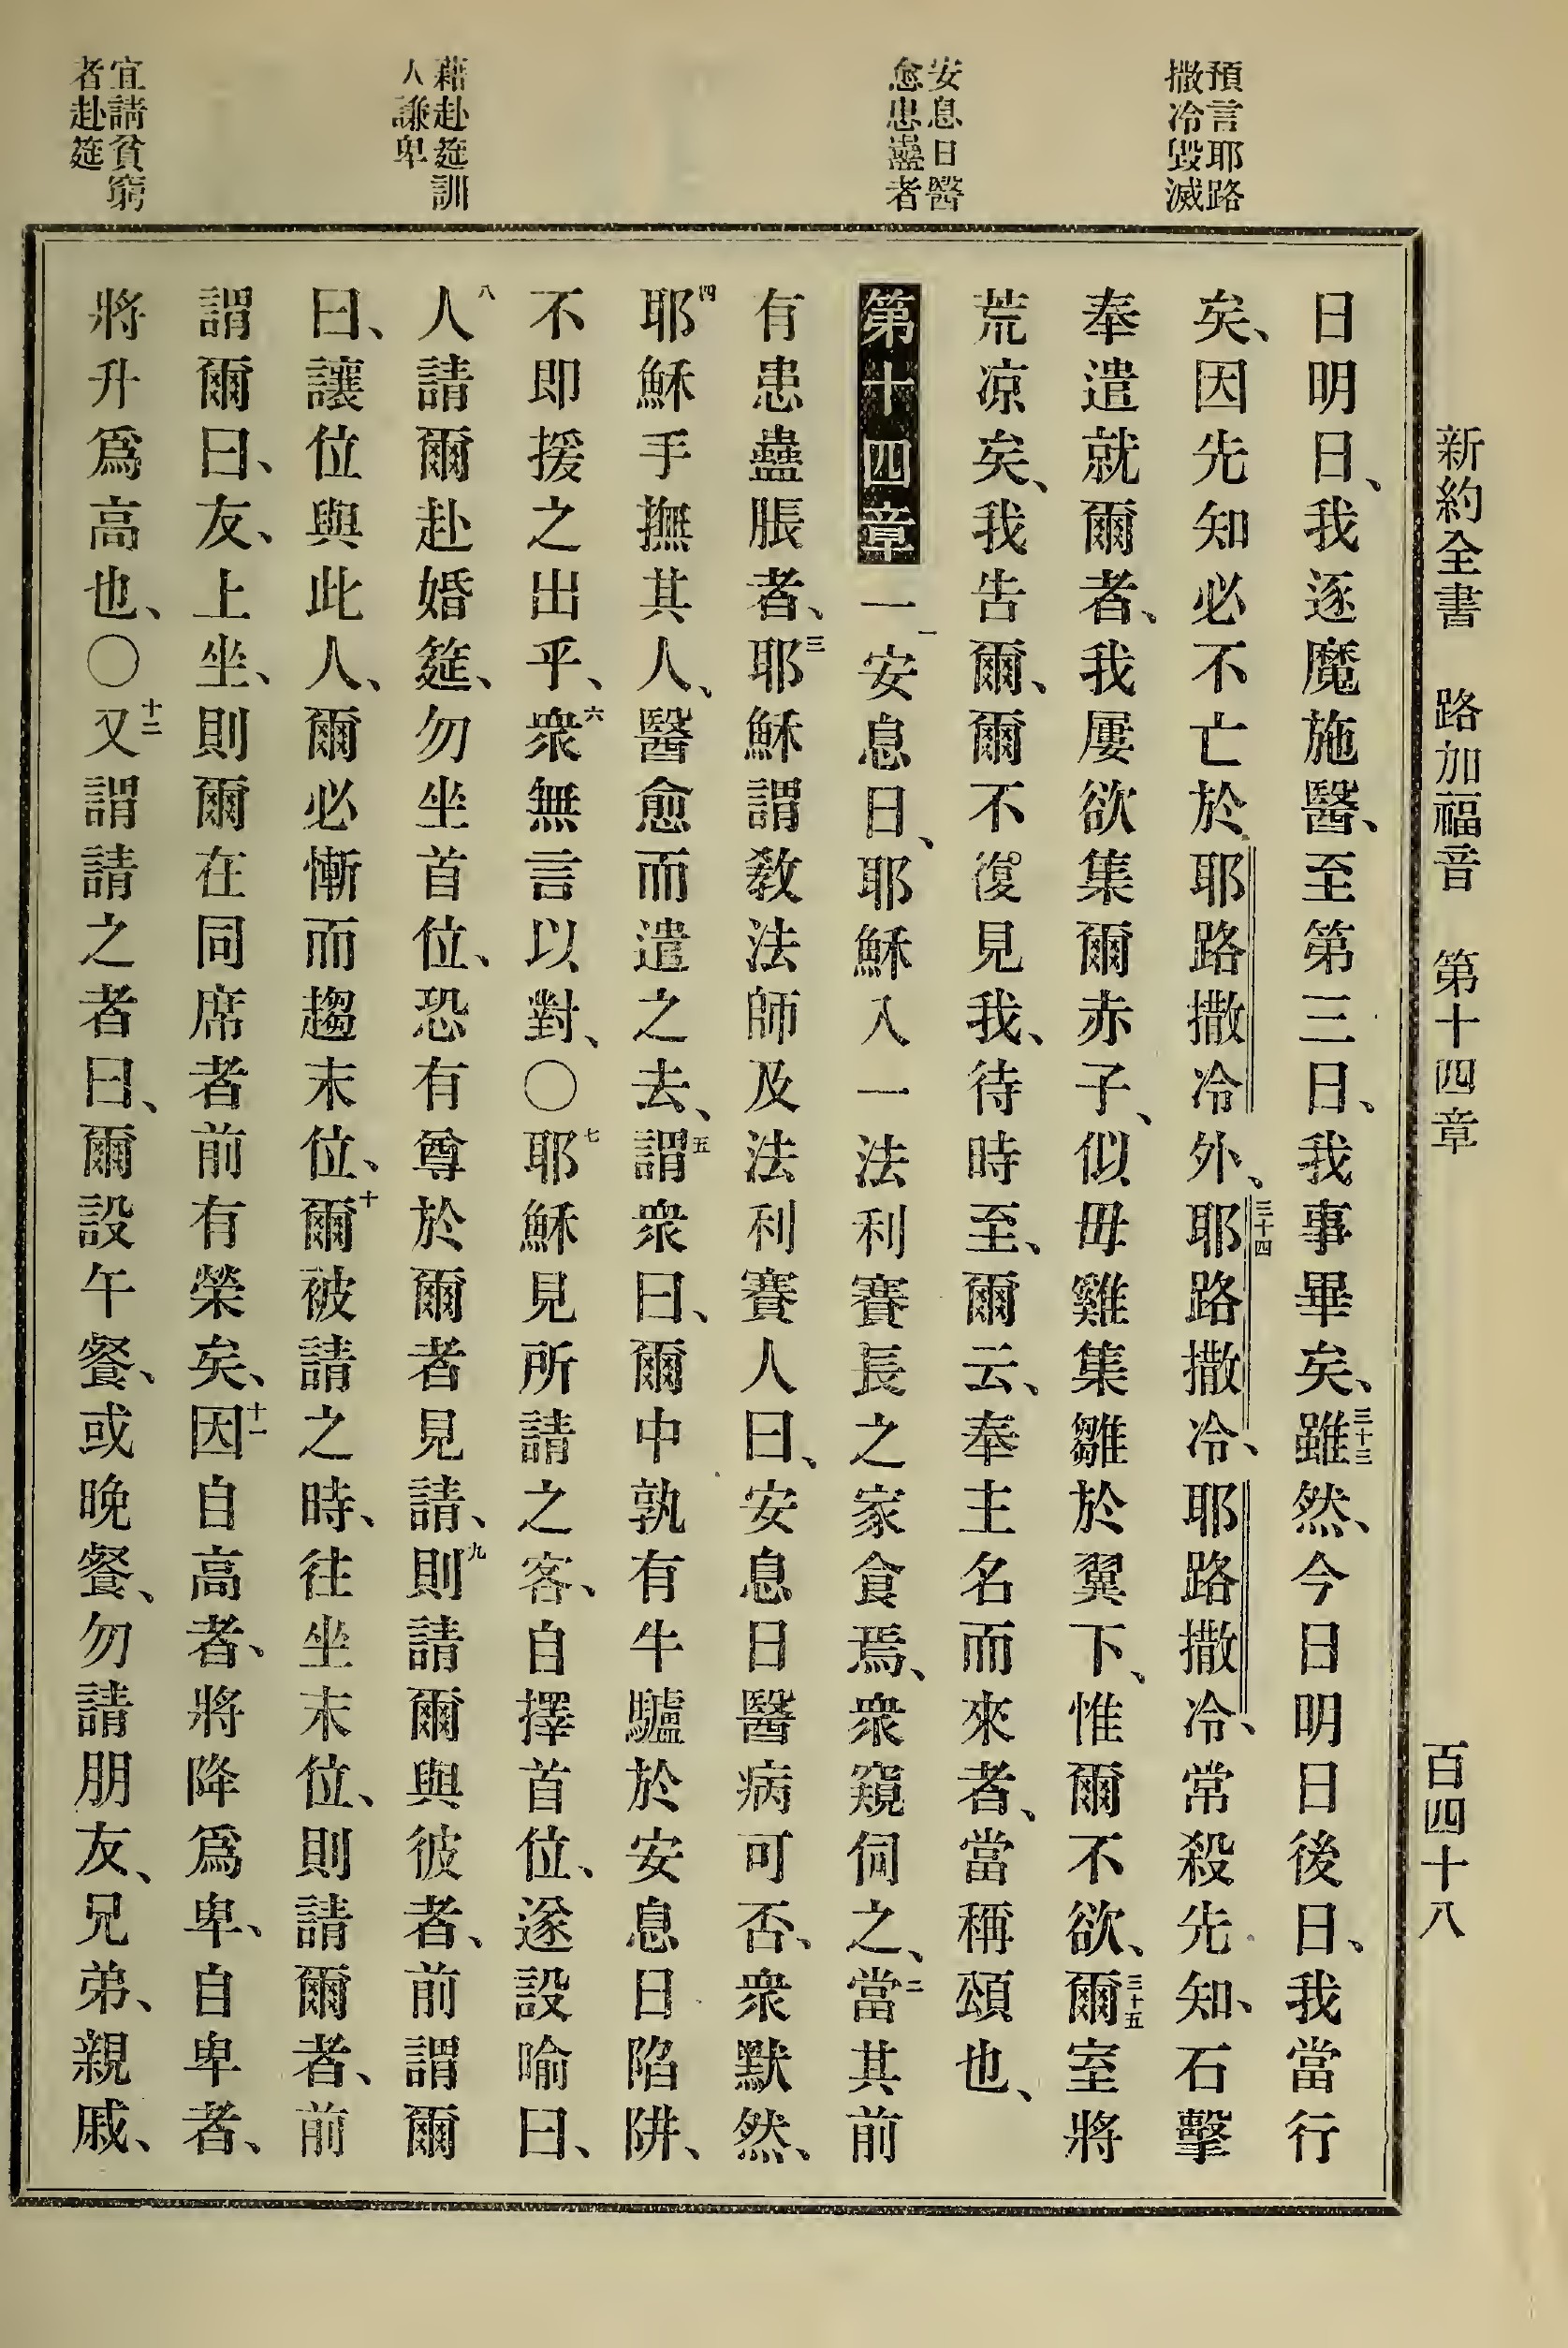 新約全書 路加福音 第十四章 百四十八
預言耶路
撒冷毀滅
安息日醫
愈患蠱者
藉赴筵訓
人謙卑
宜請貧窮
者赴筵
日明日、我逐魔施醫、至第三日、我事畢矣、三十三雖然、今日明日後日、我當行
矣、因先知必不亡於耶路撒冷外、三十四耶路撒冷、耶路撒冷、常殺先知、石擊
奉遣就爾者、我屢欲集爾赤子、似毋雞集雛於翼下、惟爾不欲、三十五爾室將
荒凉矣、我告爾、爾不復見我、待時至、爾云、奉主名而來者、當稱頌也、
第十四章 一一安息日、耶穌入一法利賽長之家食焉、衆窺伺之、二當其前
有患蠱脹者、三耶穌謂教法師及法利賽人曰、安息日醫病可否、衆默然、
四耶穌手撫其人、醫愈而遣之去、五謂衆曰、爾中孰有牛驢於安息日陷阱、
不即援之出乎、六衆無言以對、〇七耶穌見所請之客、自擇首位、遂設喻曰、
八人請爾赴婚筵、勿坐首位、恐有尊於爾者見請、九則請爾與彼者、前謂爾
曰、讓位與此人、爾必慚而趨末位、十爾被請之時、往坐末位、則請爾者、前
謂爾曰、友、上坐、則爾在同席者前有榮矣、十一因自高者、將降爲卑、自卑者、
將升爲高也、〇十二又謂請之者曰、爾設午餐、或晚餐、勿請朋友、兄弟、親戚、